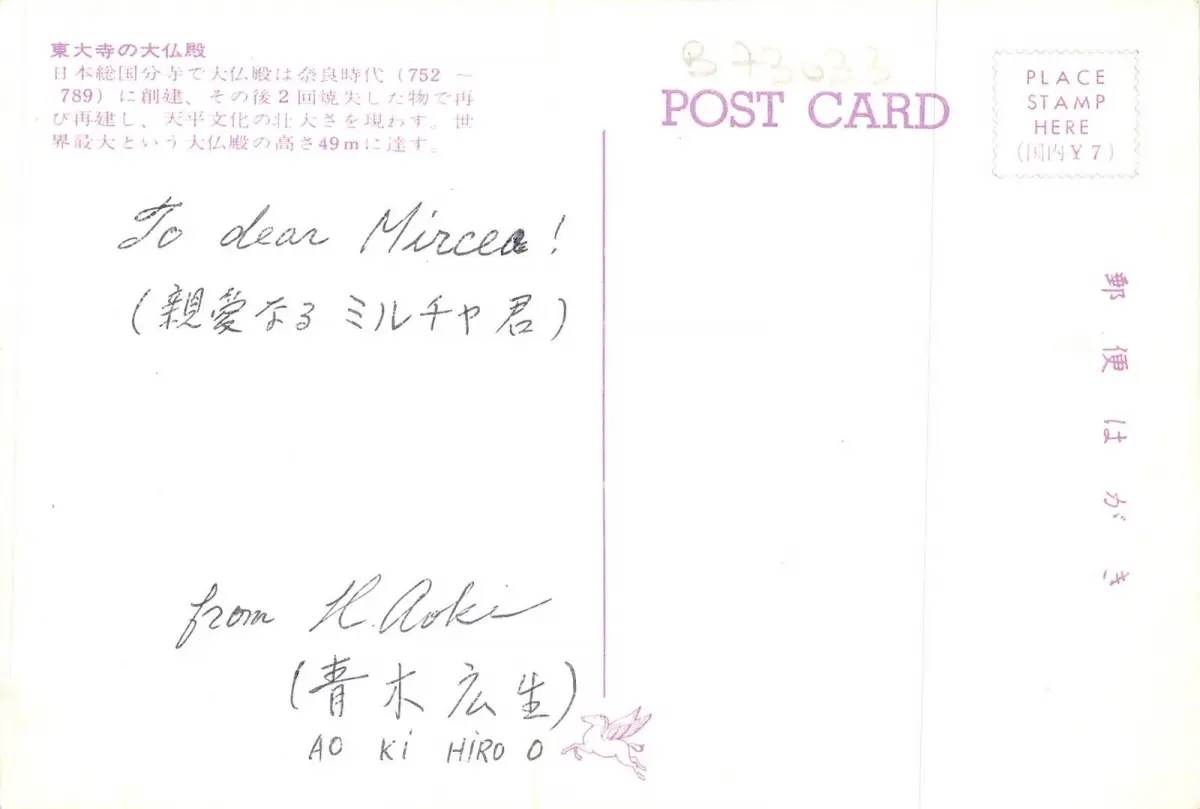 東大寺の大仏殿
日本総国分寺で大仏殿は奈良時代（752 〜
789）に創建、その後2回焼失した物で再
び再建し、天平文化の壮大さを現わす。世
界最大という大仏殿の高さ49mに達す。
To dear Mircea!
(親愛なるミルチャ君)
from H. Aoki
(青木広生)
AO KI HIRO O
B 73033
POST CARD
PLACE
STAMP
HERE
(国内￥7)
郵便はがき